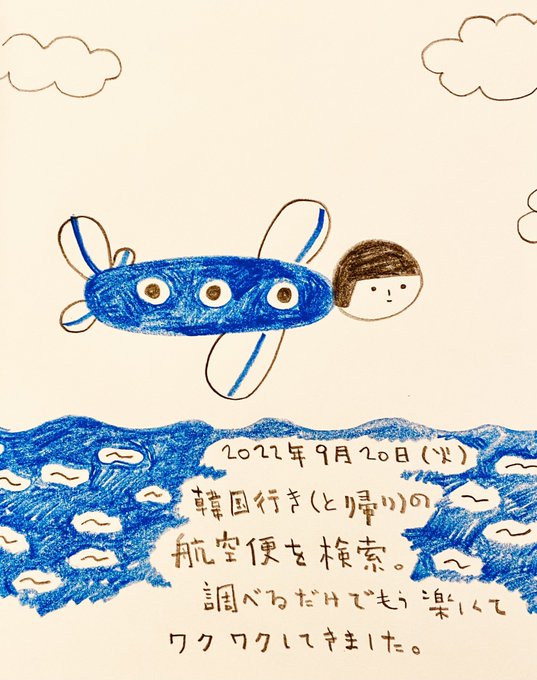 2022年9月20日(火)
韓国行き(と帰り)の
航空便を検索。
調べるだけでもう楽しくて
ワクワクしてきました。